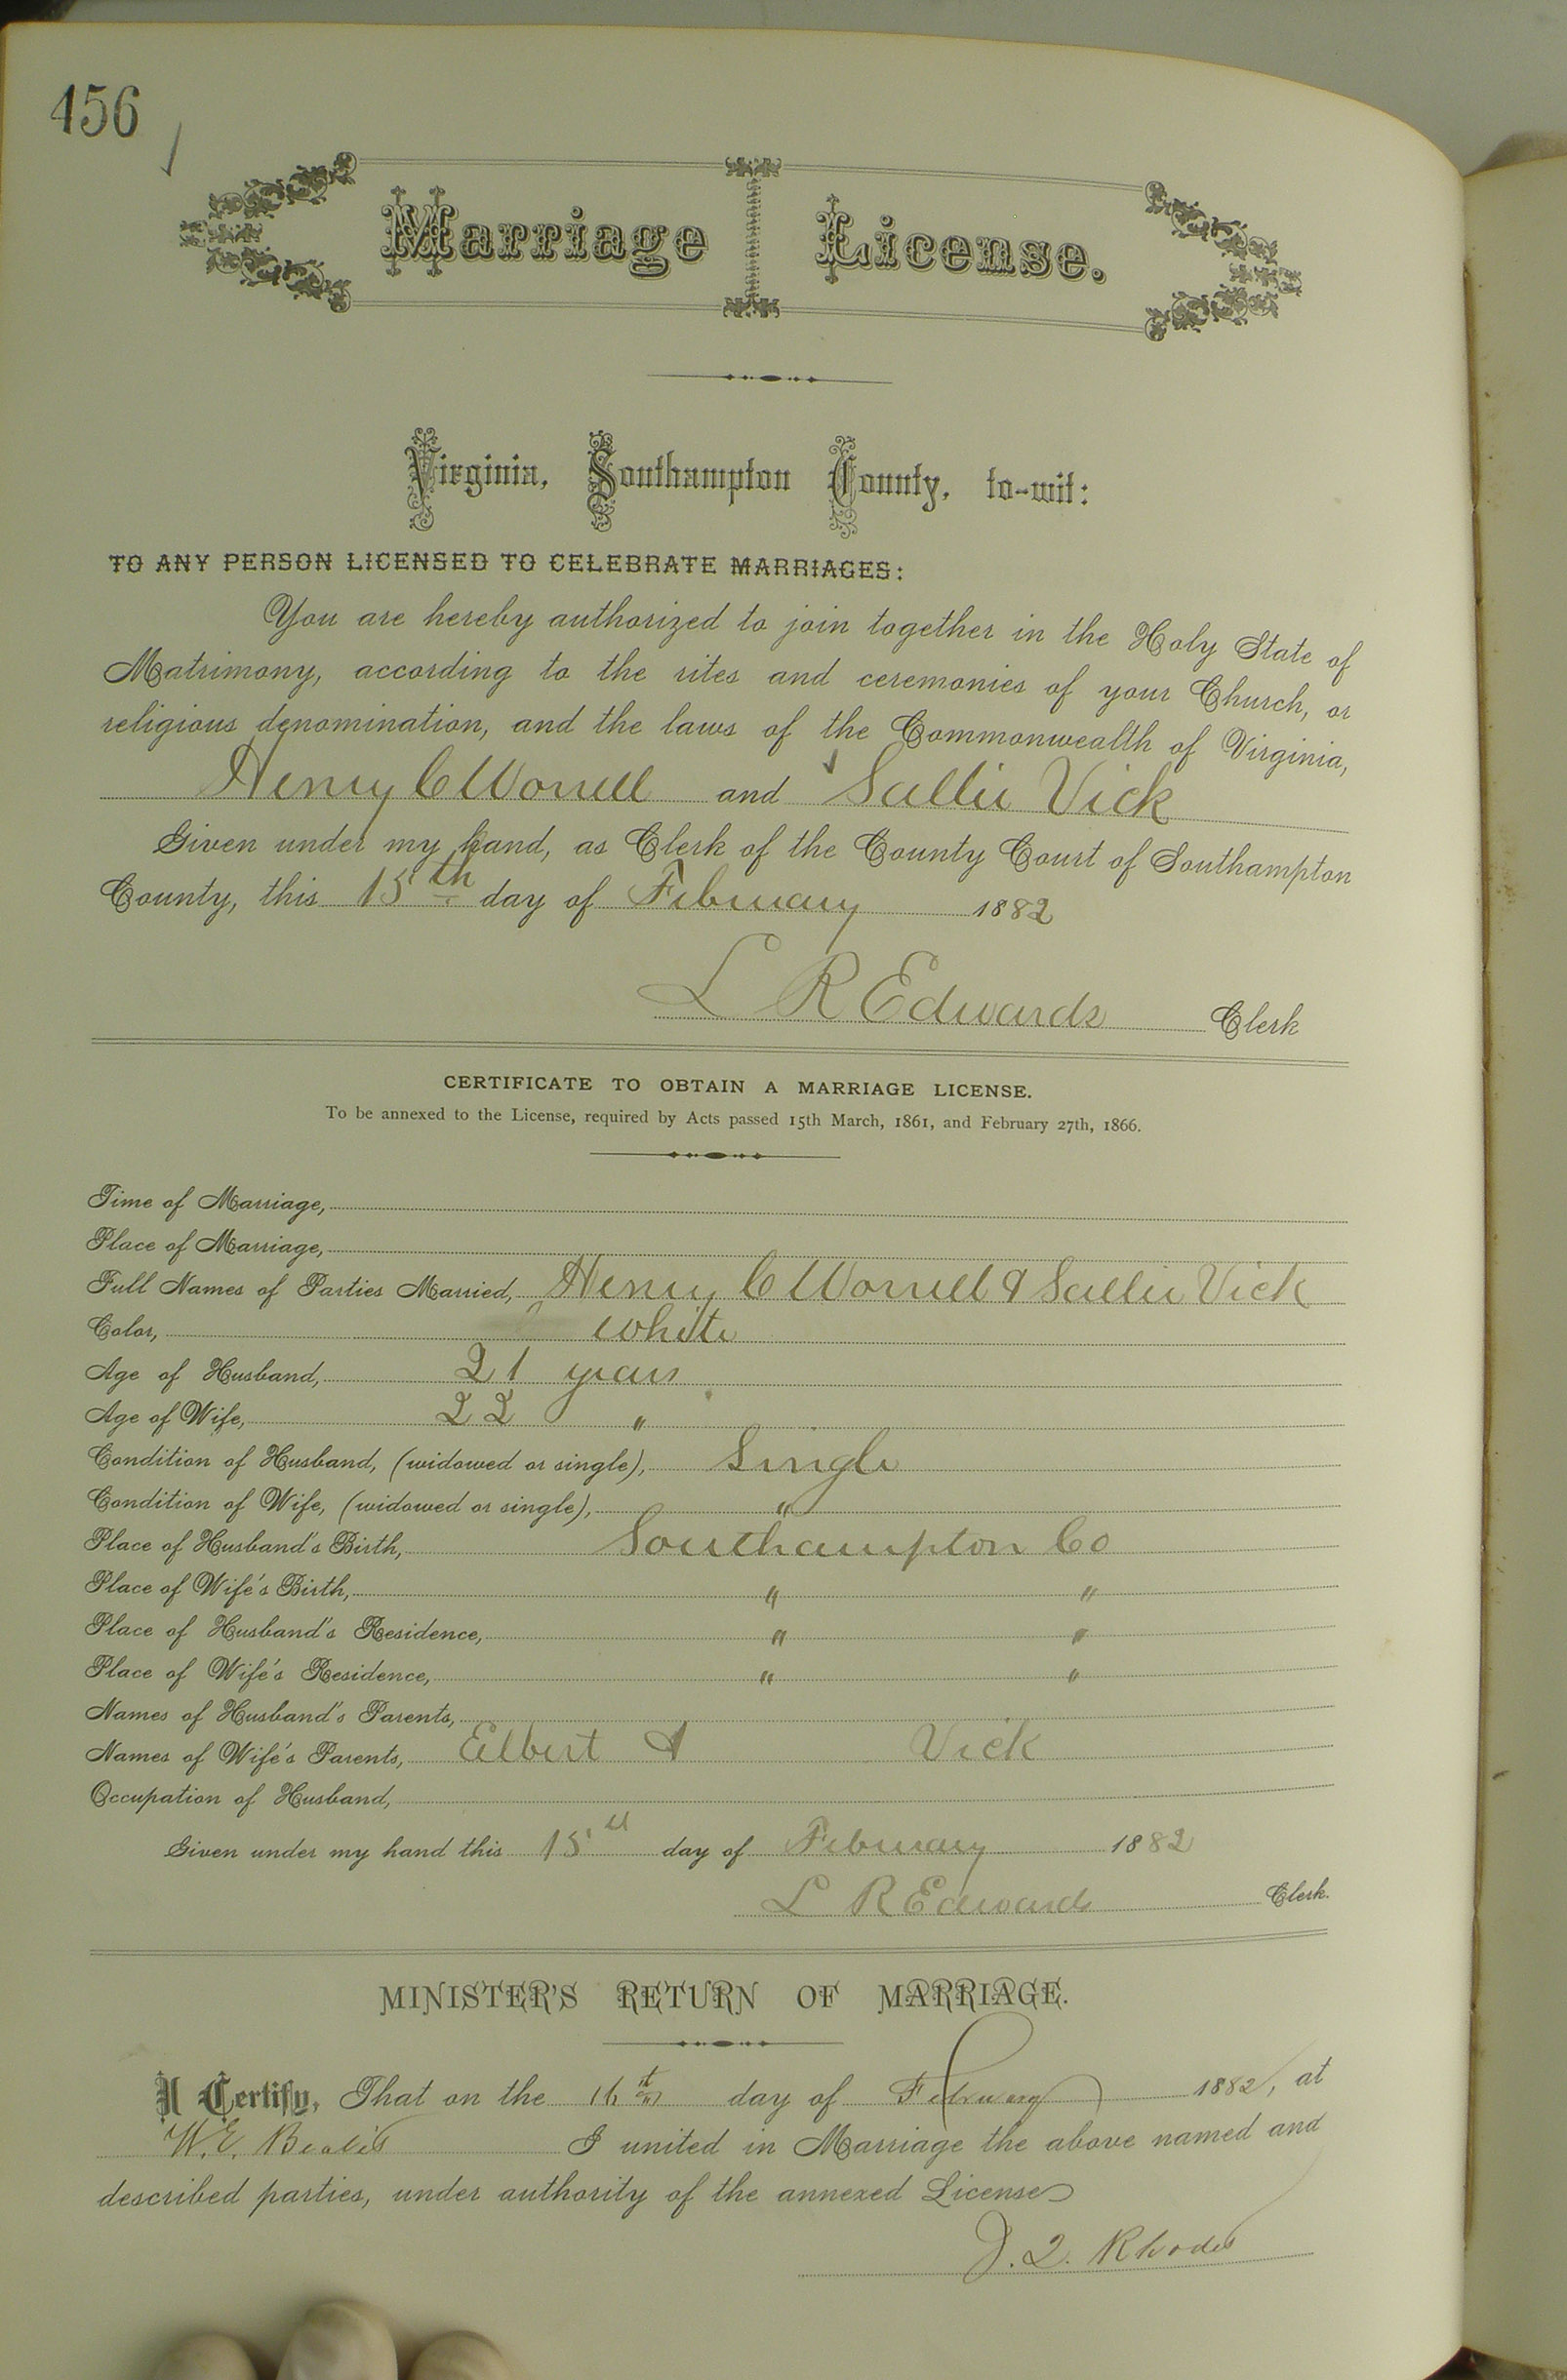 456
Marriage License.
Virginia, Southampton County, to-wit:
TO ANY PERSON LICENSED TO CELEBRATE MARRIAGES:
You are hereby authorized to join together in the Holy State of
Matrimony, according to the rites and ceremonies of your Church, or
religious denomination, and the laws of the Commonwealth of Virginia,
Henry C Worrell and Sallie Vick
Given under my hand, as Clerk of the County Court of Southampton
County, this 15th day of February 1882
L R Edwards Clerk
CERTIFICATE TO OBTAIN A MARRIAGE LICENSE.
To be annexed to the License, required by Acts passed 15th March, 1861, and February 27th, 1866.
Time of Marriage,
Place of Marriage,
Full Names of Parties Married, Henry C Worrell & Sallie Vick
Color, white
Age of Husband, 21 years
Age of Wife, 22 "
Condition of Husband, (widowed or single), Single
Condition of Wife, (widowed or single), "
Place of Husband's Birth, Southampton Co
Place of Wife's Birth, " "
Place of Husband's Residence, " "
Place of Wife's Residence, " "
Names of Husband's Parents,
Names of Wife's Parents, Elbert & Vick
Occupation of Husband,
Given under my hand this 15th day of February 1882
L R Edwards Clerk.
MINISTER'S RETURN OF MARRIAGE.
I Certify, That on the 16th day of February 1882, at
W. E. Beale's I united in Marriage the above named and
described parties, under authority of the annexed License
J. Q. Rhodes